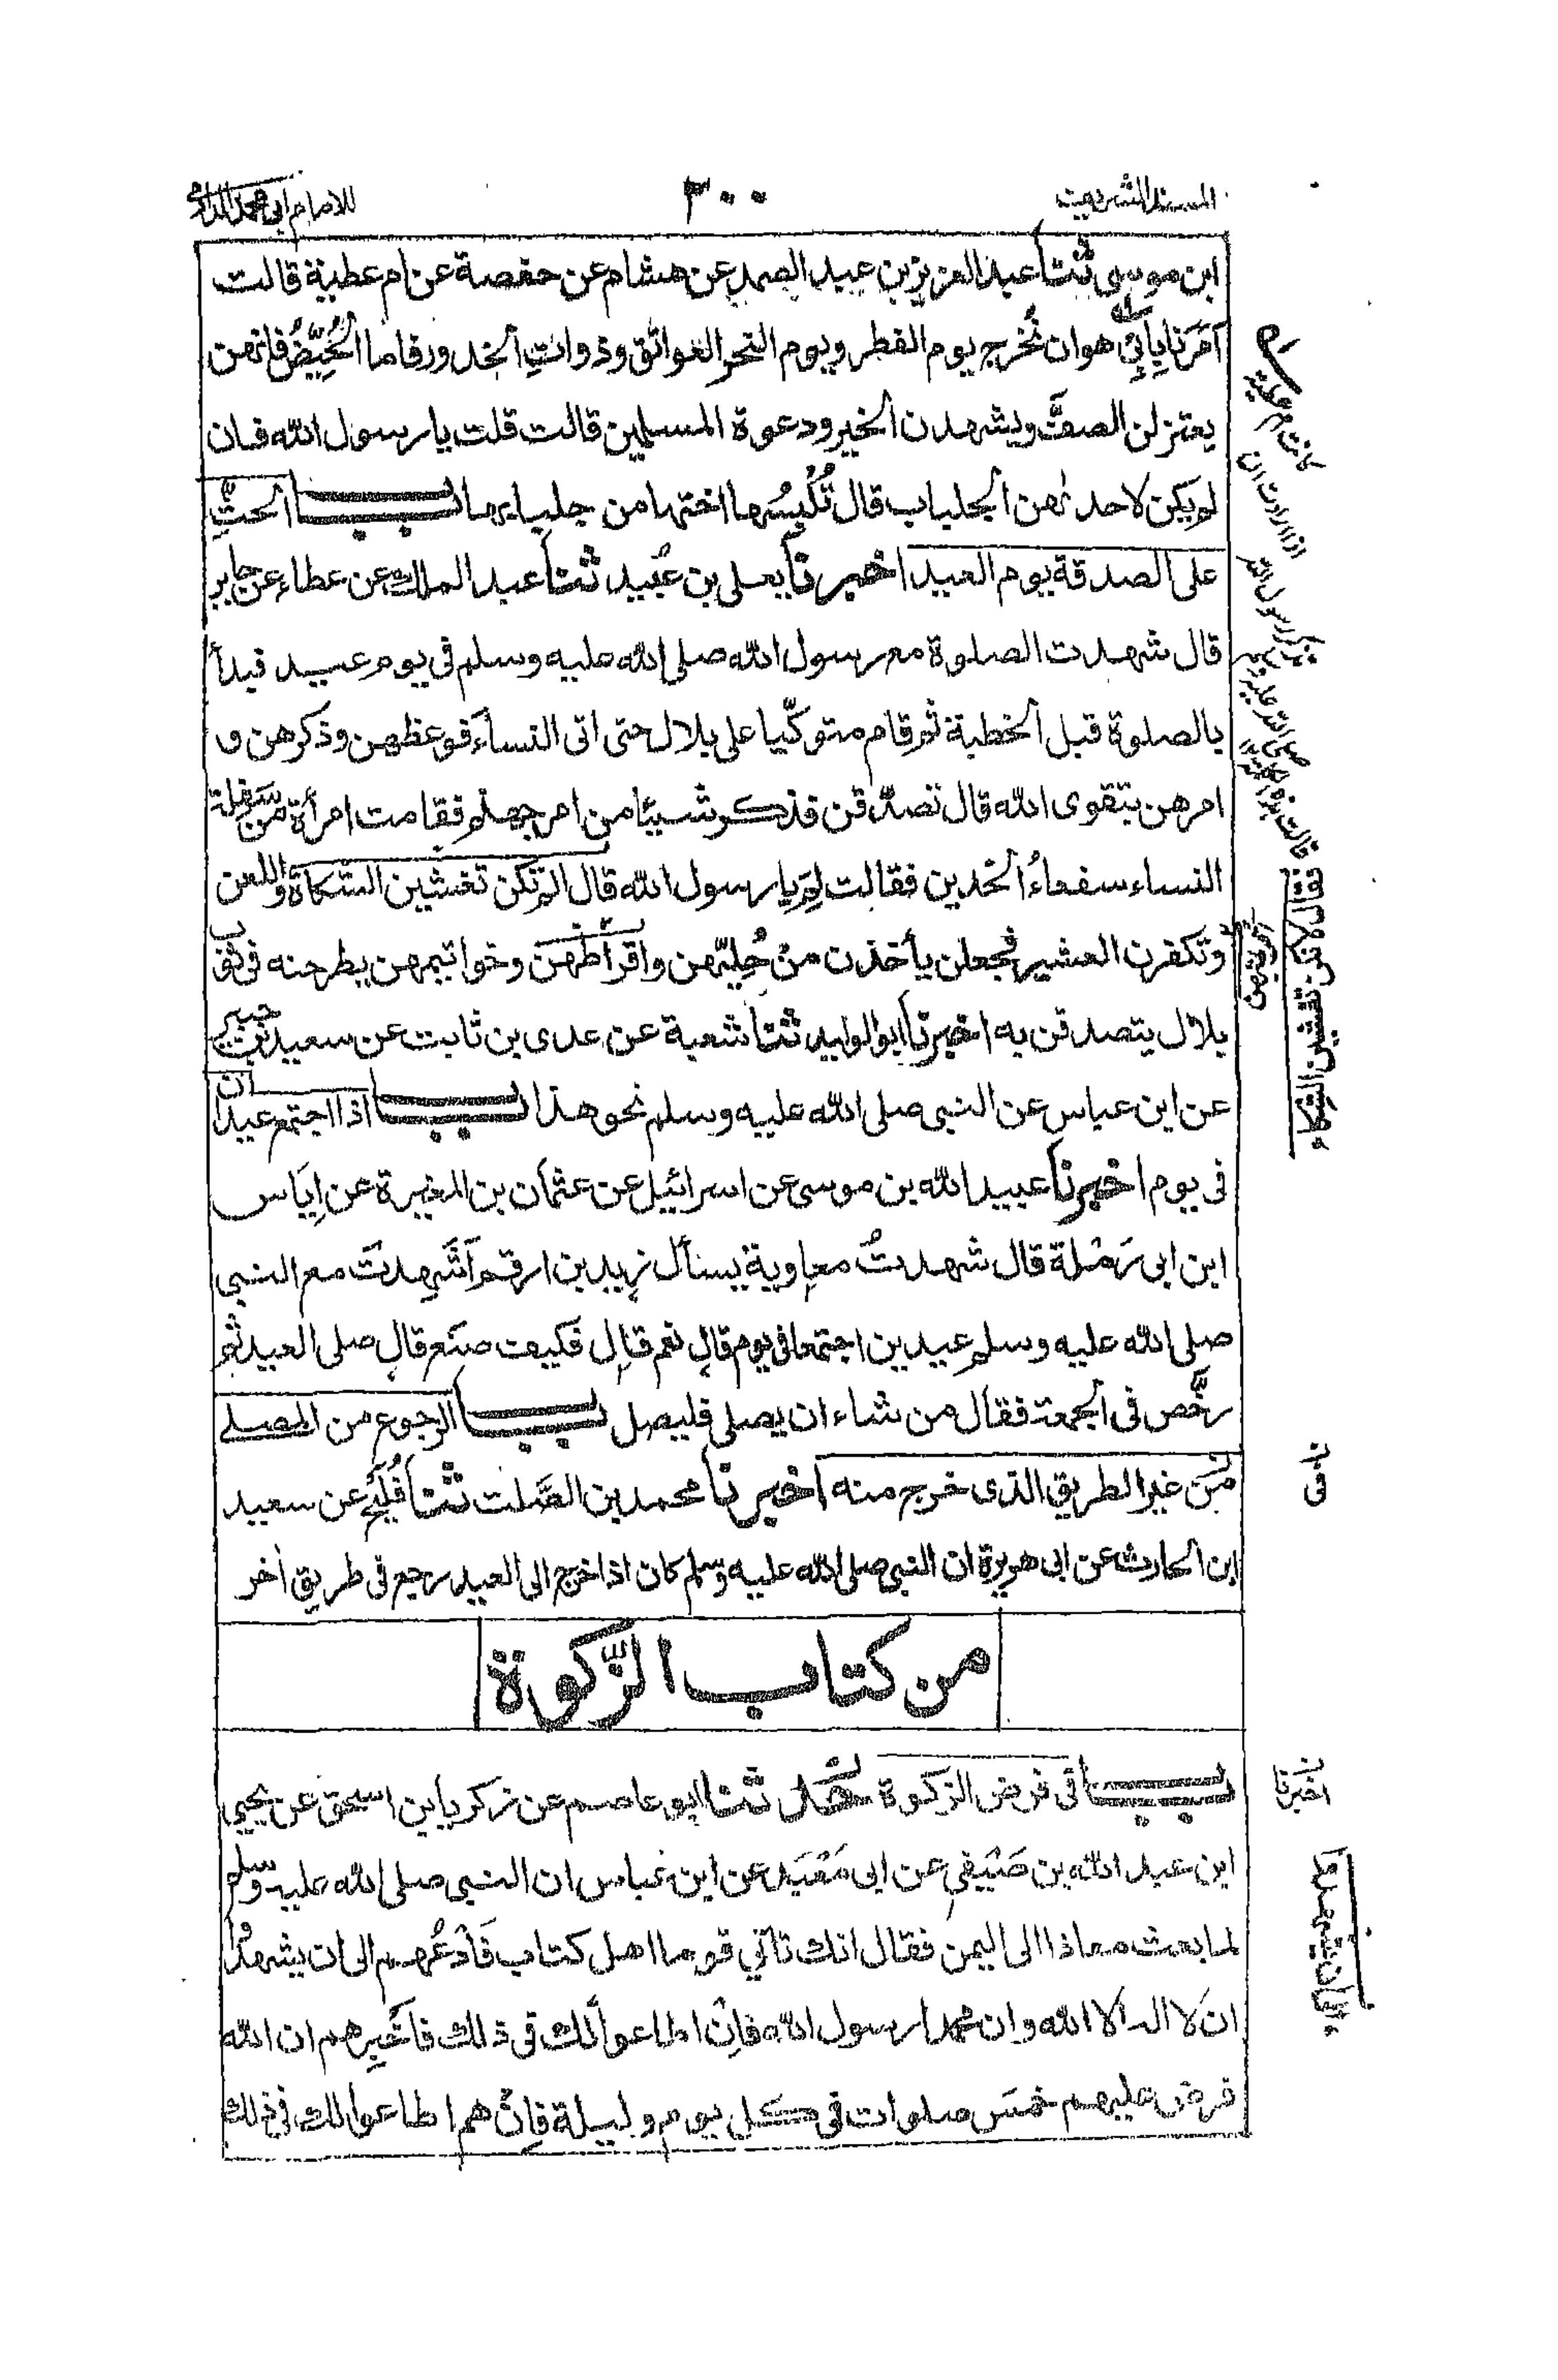 المسند الشريف ٣٠٠ للامام ابى محمد الدارمى
ابن موسى ثنا عبد العزيز بن عبد الصمد عن هشام عن حفصة عن ام عطية قالت
اَمَرَنا بِاَبِى هوان نُخرج يوم الفطر ويوم النحر العواتق وذواتِ الخدور فاما الحُيَّضُ فانهن
يعتزلن الصفَّ ويشهدن الخير ودعوة المسلمين قالت قلت يا رسول الله فان
لم يكن لاحدٰهن الجلباب قال تُلْبِسُها اختها من جلبابها باب الحثِّ
على الصدقة يوم العيد اخبرنا يعلى بن عُبيد ثنا عبد الملك عن عطاء عن جابر
قال شهدت الصلوة مع رسول الله صلى الله عليه وسلم فى يوم عيد فبدأ
بالصلوة قبل الخطبة ثم قام متوكّيا على بلال حتى اتى النساء فوعظهن وذكرهن و
امرهن بتقوى الله قال تصدّقن فذكر شيئا من امر جهنم فقامت امرأة من سَفِلة
النساء سفعاءُ الخدين فقالت لِمَ يا رسول الله قال انّكن تفشين الشكاة واللعن
وتكفرن العشير فجعلن يأخذن من حُلِيّهن واقراطهن وخواتيمهن يطرحنه فى ثوب
بلال يتصدقن به اخبرنا ابو الوليد ثنا شعبة عن عدى بن ثابت عن سعيد بن جبير
عن ابن عباس عن النبى صلى الله عليه وسلم نحو هذا باب اذا اجتمع عيدان
فى يوم اخبرنا عبيد الله بن موسى عن اسرائيل عن عثمان بن المغيرة عن اِيَاس
ابن ابى رَمْلة قال شهدتُ معاوية يسأل زيد بن ارقم اَشَهِدتَ مع النبى
صلى الله عليه وسلم عيدين اجتمعا فى يوم قال نعم قال فكيف صَنَع قال صلى العيد ثم
رخَّص فى الجمعة فقال من شاء ان يصلى فليصل باب الرجوع من المصلى
مِنْ غير الطريق الذى خرج منه اخبرنا محمد بن الصَّلت ثنا فُلَيْح عن سعيد
ابن الحارث عن ابى هريرة ان النبى صلى الله عليه وسلم كان اذا خرج الى العيد رجع فى طريق اٰخر
من كتاب الزّكوة
باب فى فرض الزكوة ثنا ابو عاصم عن زكريا بن اسحق عن يحيى
ابن عبد الله بن صَيْفِي عن ابى مَعْبَد عن ابن عباس ان النبى صلى الله عليه وسلم
لما بعث معاذا الى اليمن فقال انك تأتي قوما اهل كتاب فَادْعُهم الى ان يشهدُوا
ان لا اله الا الله وان محمدا رسول الله فاِنْ اطاعوا لك فى ذلك فاَخْبِرهم ان الله
فرض عليهم خمسَ صلوات فى كل يوم وليلة فاِنْ هم اطاعوا لك فى ذلك
كانت ام عطية
اذا ارادت ان
تذكر رسول الله
صلى الله عليه وسلم
قالت
تفشين الشكاة
اخبرنا